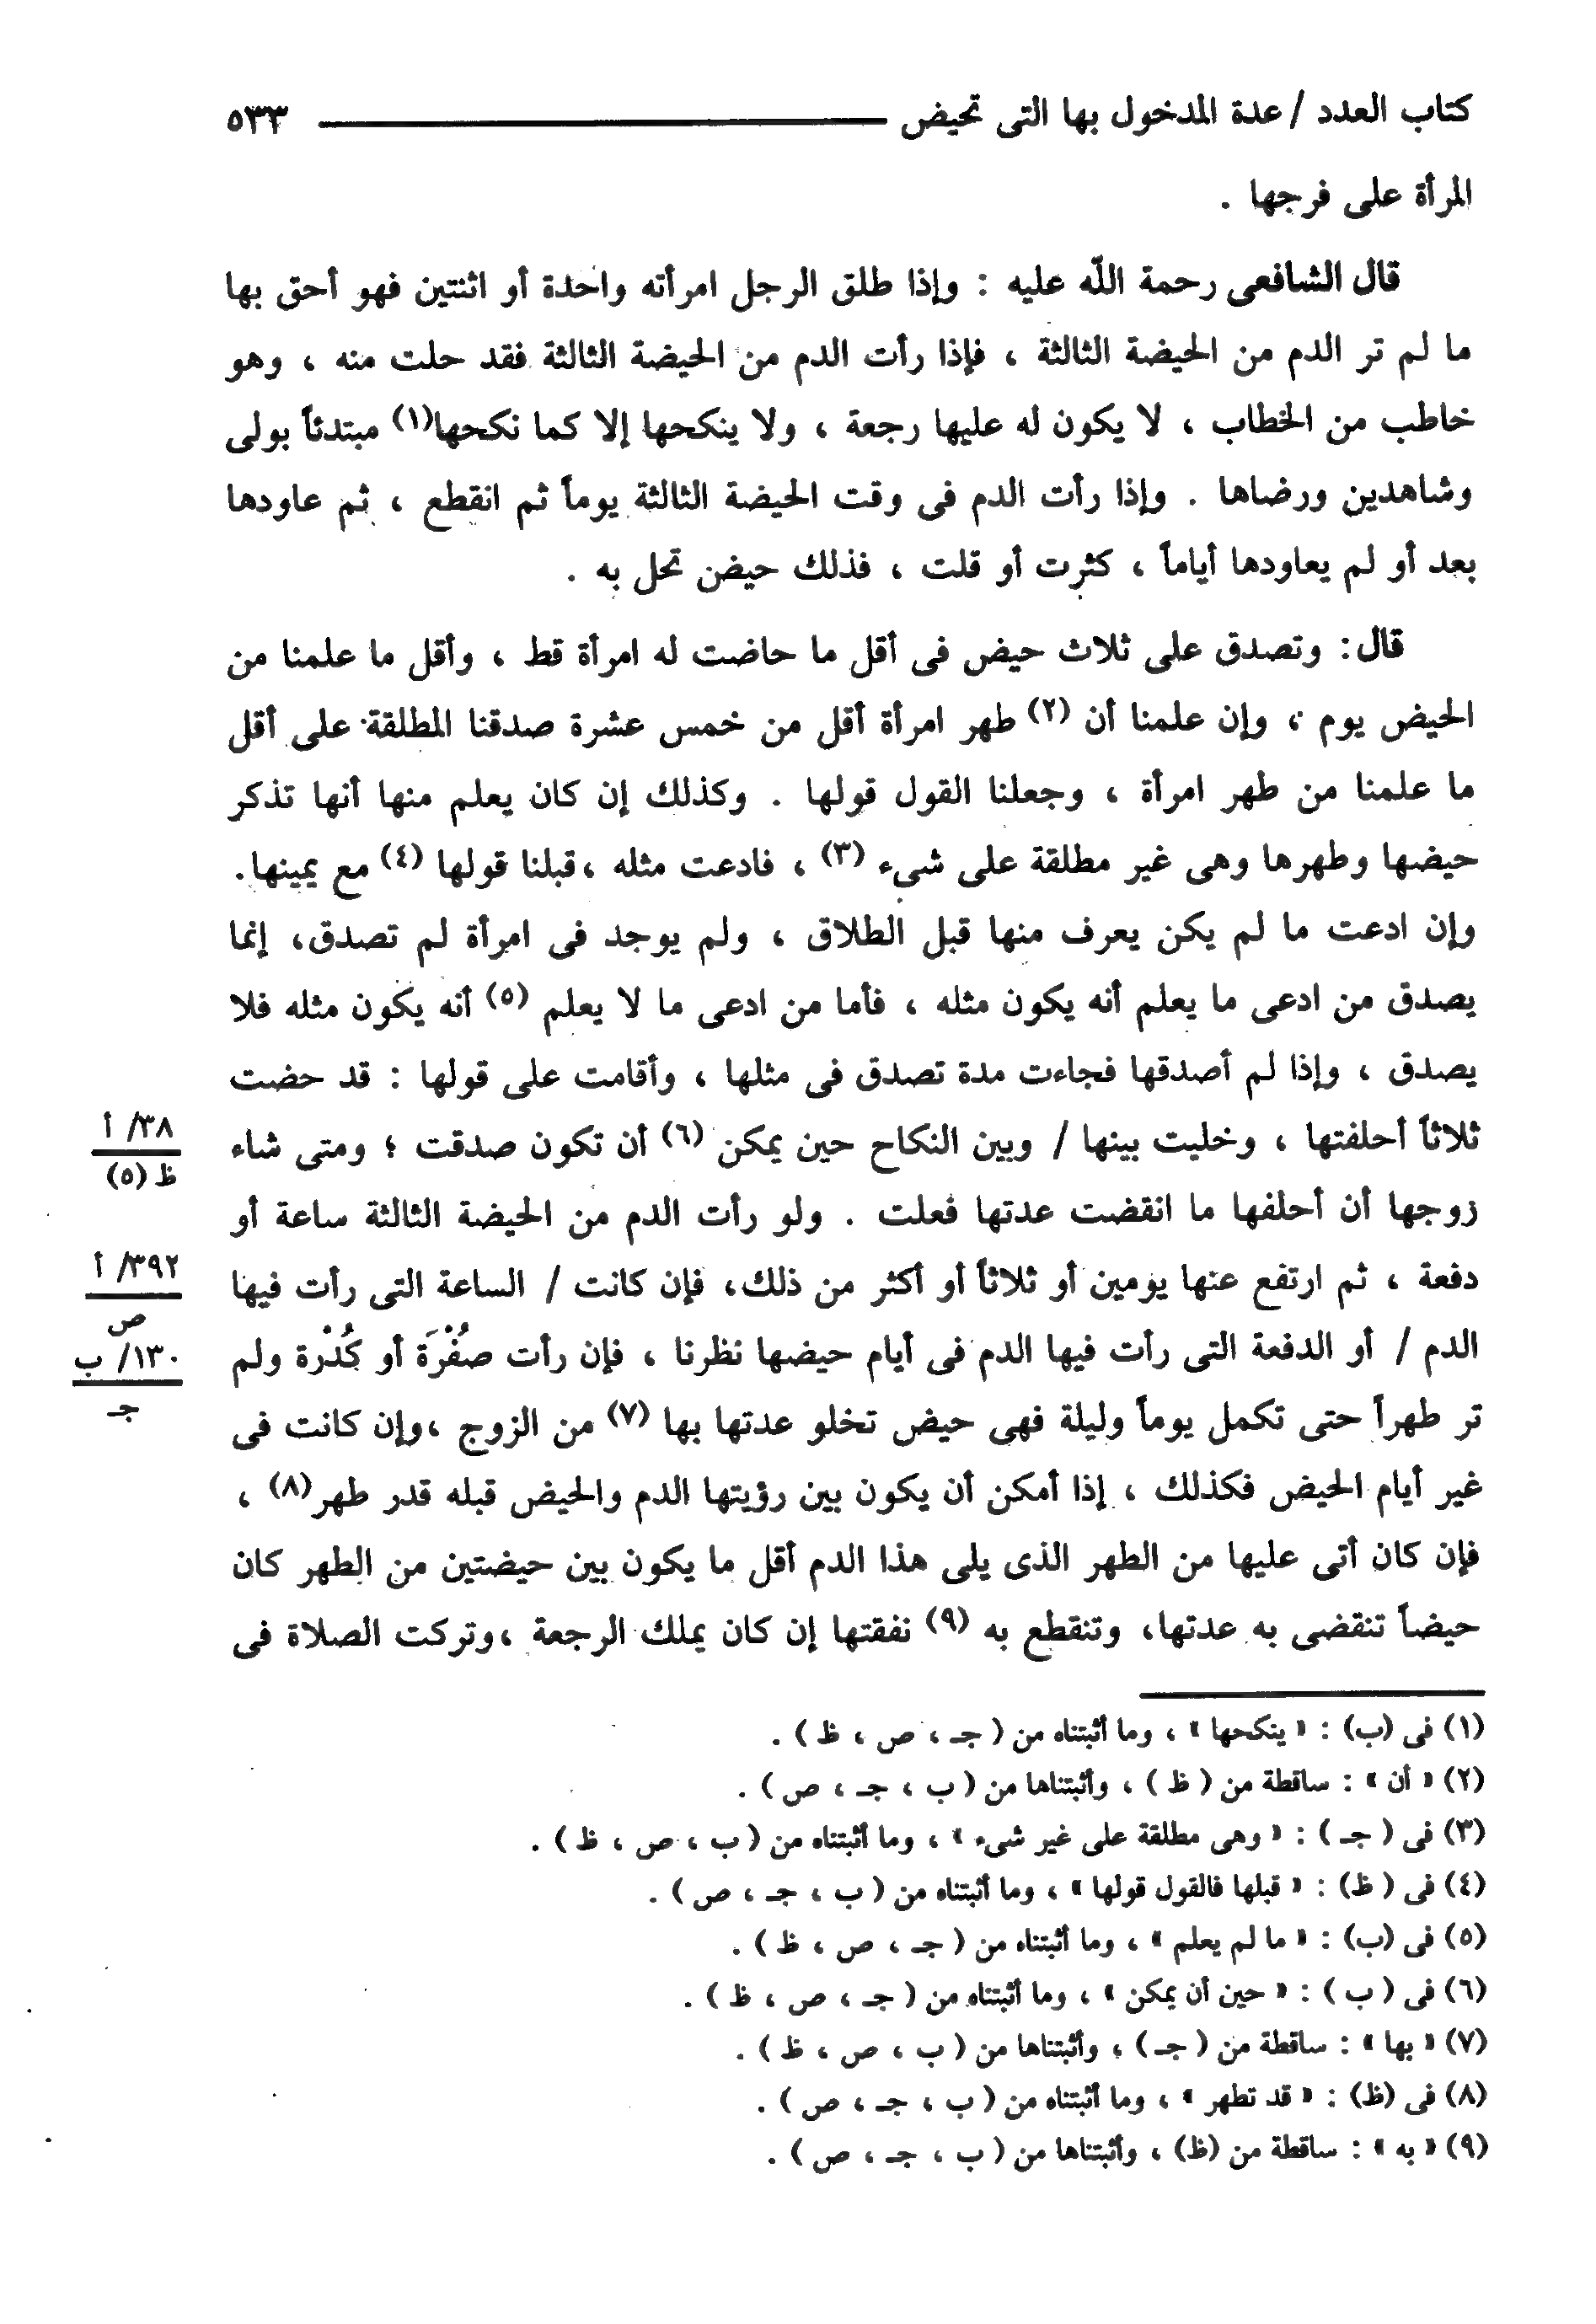 كتاب العدد / عدة المدخول بها التى تحيض ٥٣٣
المرأة على فرجها .
قال الشافعى رحمة اللّه عليه : وإذا طلق الرجل امرأته واحدة أو اثنتين فهو أحق بها
ما لم تر الدم من الحيضة الثالثة ، فإذا رأت الدم من الحيضة الثالثة فقد حلت منه ، وهو
خاطب من الخطاب ، لا يكون له عليها رجعة ، ولا ينكحها إلا كما نكحها(١) مبتدئاً بولى
وشاهدين ورضاها . وإذا رأت الدم فى وقت الحيضة الثالثة يوماً ثم انقطع ، ثم عاودها
بعد أو لم يعاودها أياماً ، كثرت أو قلت ، فذلك حيض تحل به .
قال: وتصدق على ثلاث حيض فى أقل ما حاضت له امرأة قط ، وأقل ما علمنا من
الحيض يوم ، وإن علمنا أن (٢) طهر امرأة أقل من خمس عشرة صدقنا المطلقة على أقل
ما علمنا من طهر امرأة ، وجعلنا القول قولها . وكذلك إن كان يعلم منها أنها تذكر
حيضها وطهرها وهى غير مطلقة على شىء (٣) ، فادعت مثله ،قبلنا قولها (٤) مع يمينها.
وإن ادعت ما لم يكن يعرف منها قبل الطلاق ، ولم يوجد فى امرأة لم تصدق، إنما
يصدق من ادعى ما يعلم أنه يكون مثله ، فأما من ادعى ما لا يعلم (٥) أنه يكون مثله فلا
يصدق ، وإذا لم أصدقها فجاءت مدة تصدق فى مثلها ، وأقامت على قولها : قد حضت
ثلاثاً أحلفتها ، وخليت بينها / وبين النكاح حين يمكن (٦) أن تكون صدقت ؛ ومتى شاء
٣٨/ أ
ظ (٥)
زوجها أن أحلفها ما انقضت عدتها فعلت . ولو رأت الدم من الحيضة الثالثة ساعة أو
دفعة ، ثم ارتفع عنها يومين أو ثلاثاً أو أكثر من ذلك، فإن كانت / الساعة التى رأت فيها
٣٩٢/ أ
ص
الدم / أو الدفعة التى رأت فيها الدم فى أيام حيضها نظرنا ، فإن رأت صُفْرَة أو كُدْرة ولم
١٣٠/ ب
جـ
تر طهراً حتى تكمل يوماً وليلة فهى حيض تخلو عدتها بها (٧) من الزوج ،وإن كانت فى
غير أيام الحيض فكذلك ، إذا أمكن أن يكون بين رؤيتها الدم والحيض قبله قدر طهر(٨) ،
فإن كان أتى عليها من الطهر الذى يلى هذا الدم أقل ما يكون بين حيضتين من الطهر كان
حيضاً تنقضى به عدتها، وتنقطع به (٩) نفقتها إن كان يملك الرجعة ،وتركت الصلاة فى
(١) فى (ب) : « ينكحها » ، وما أثبتناه من ( جـ ، ص ، ظ ) .
(٢) « أن » : ساقطة من ( ظ ) ، وأثبتناها من ( ب ، جـ ، ص ) .
(٣) فى ( جـ ) : « وهى مطلقة على غير شىء » ، وما أثبتناه من ( ب ، ص ، ظ ) .
(٤) فى ( ظ) : « قبلها فالقول قولها » ، وما أثبتناه من ( ب ، جـ ، ص ) .
(٥) فى (ب) : « ما لم يعلم » ، وما أثبتناه من ( جـ ، ص ، ظ ) .
(٦) فى ( ب ) : « حين أن يمكن » ، وما أثبتناه من ( جـ ، ص ، ظ ) .
(٧) « بها » : ساقطة من ( جـ ) ، وأثبتناها من ( ب ، ص ، ظ ) .
(٨) فى (ظ) : « قد تطهر » ، وما أثبتناه من ( ب ، جـ ، ص ) .
(٩) « به » : ساقطة من (ظ) ، وأثبتناها من ( ب ، جـ ، ص ) .